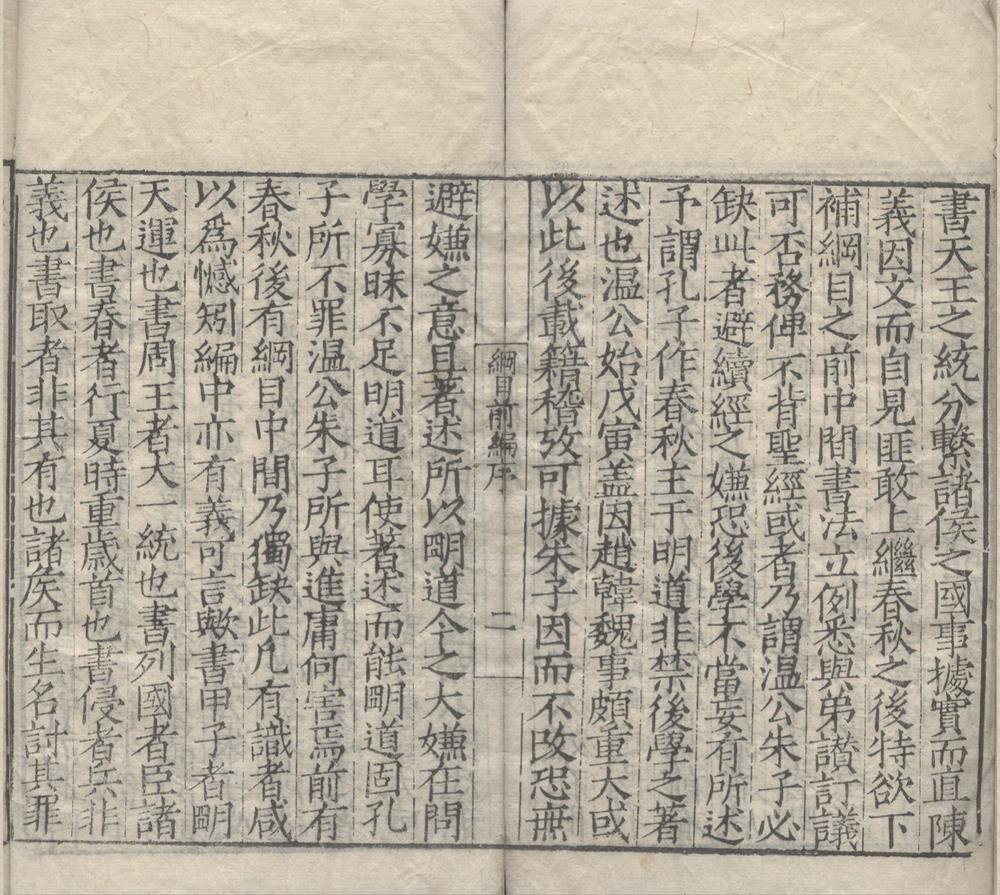 書天王之統分繫諸侯之國事據實而直陳
義因文而自見匪敢上繼春秋之後特欲下
補綱目之前中間書法立例悉與弟讃訂議
可否務俾不背聖經或者乃謂温公朱子必
缺此者避續經之嫌恐後學不當妄有所述
予謂孔子作春秋主于明道非禁後學之著
述也温公始戊寅盖因趙韓魏事頗重大或
以此後載籍稽攷可據朱子因而不改恐無
綱目前編序
二
避嫌之意且著述所以明道今之大嫌在問
學寡昧不足明道耳使著述而能明道固孔
子所不罪温公朱子所與進庸何害焉前有
春秋後有綱目中間乃獨缺此凡有識者咸
以爲憾矧編中亦有義可言歟書甲子者明
天運也書周王者大一統也書列國者臣諸
侯也書春者行夏時重歲首也書侵者兵非
義也書取者非其有也諸侯而生名討其罪